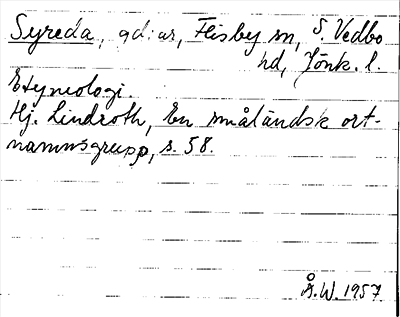 Syreda, gd:ar, Flisby sn, S. Vedbo
hd, Jönk. l.
Etymologi.
Hj. Lindroth, En småländsk ort-
namnsgrupp, s. 58.
Å.W. 1957